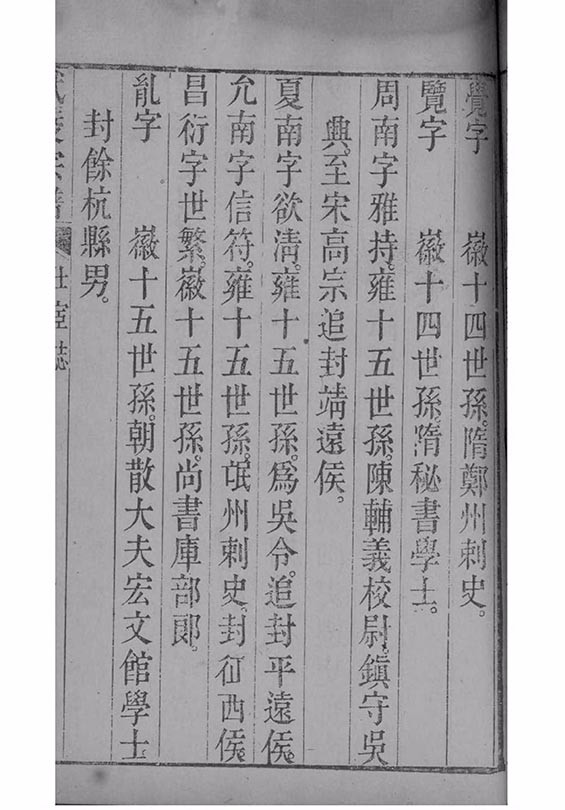 覺字　　徽十四世孫。隋鄭州刺史。
覽字　　徽十四世孫。隋秘書學士。
周南字雅持。雍十五世孫。陳輔義校尉。鎮守吳
興。至宋高宗追封靖遠侯。
夏南字欲清。雍十五世孫。爲吳令。追封平遠侯。
允南字信符。雍十五世孫。氓州刺史。封征西侯。
昌衍字世繁。徽十五世孫。尚書庫部郞。
亂字　　徽十五世孫。朝散大夫宏文館學士
封餘杭縣男。